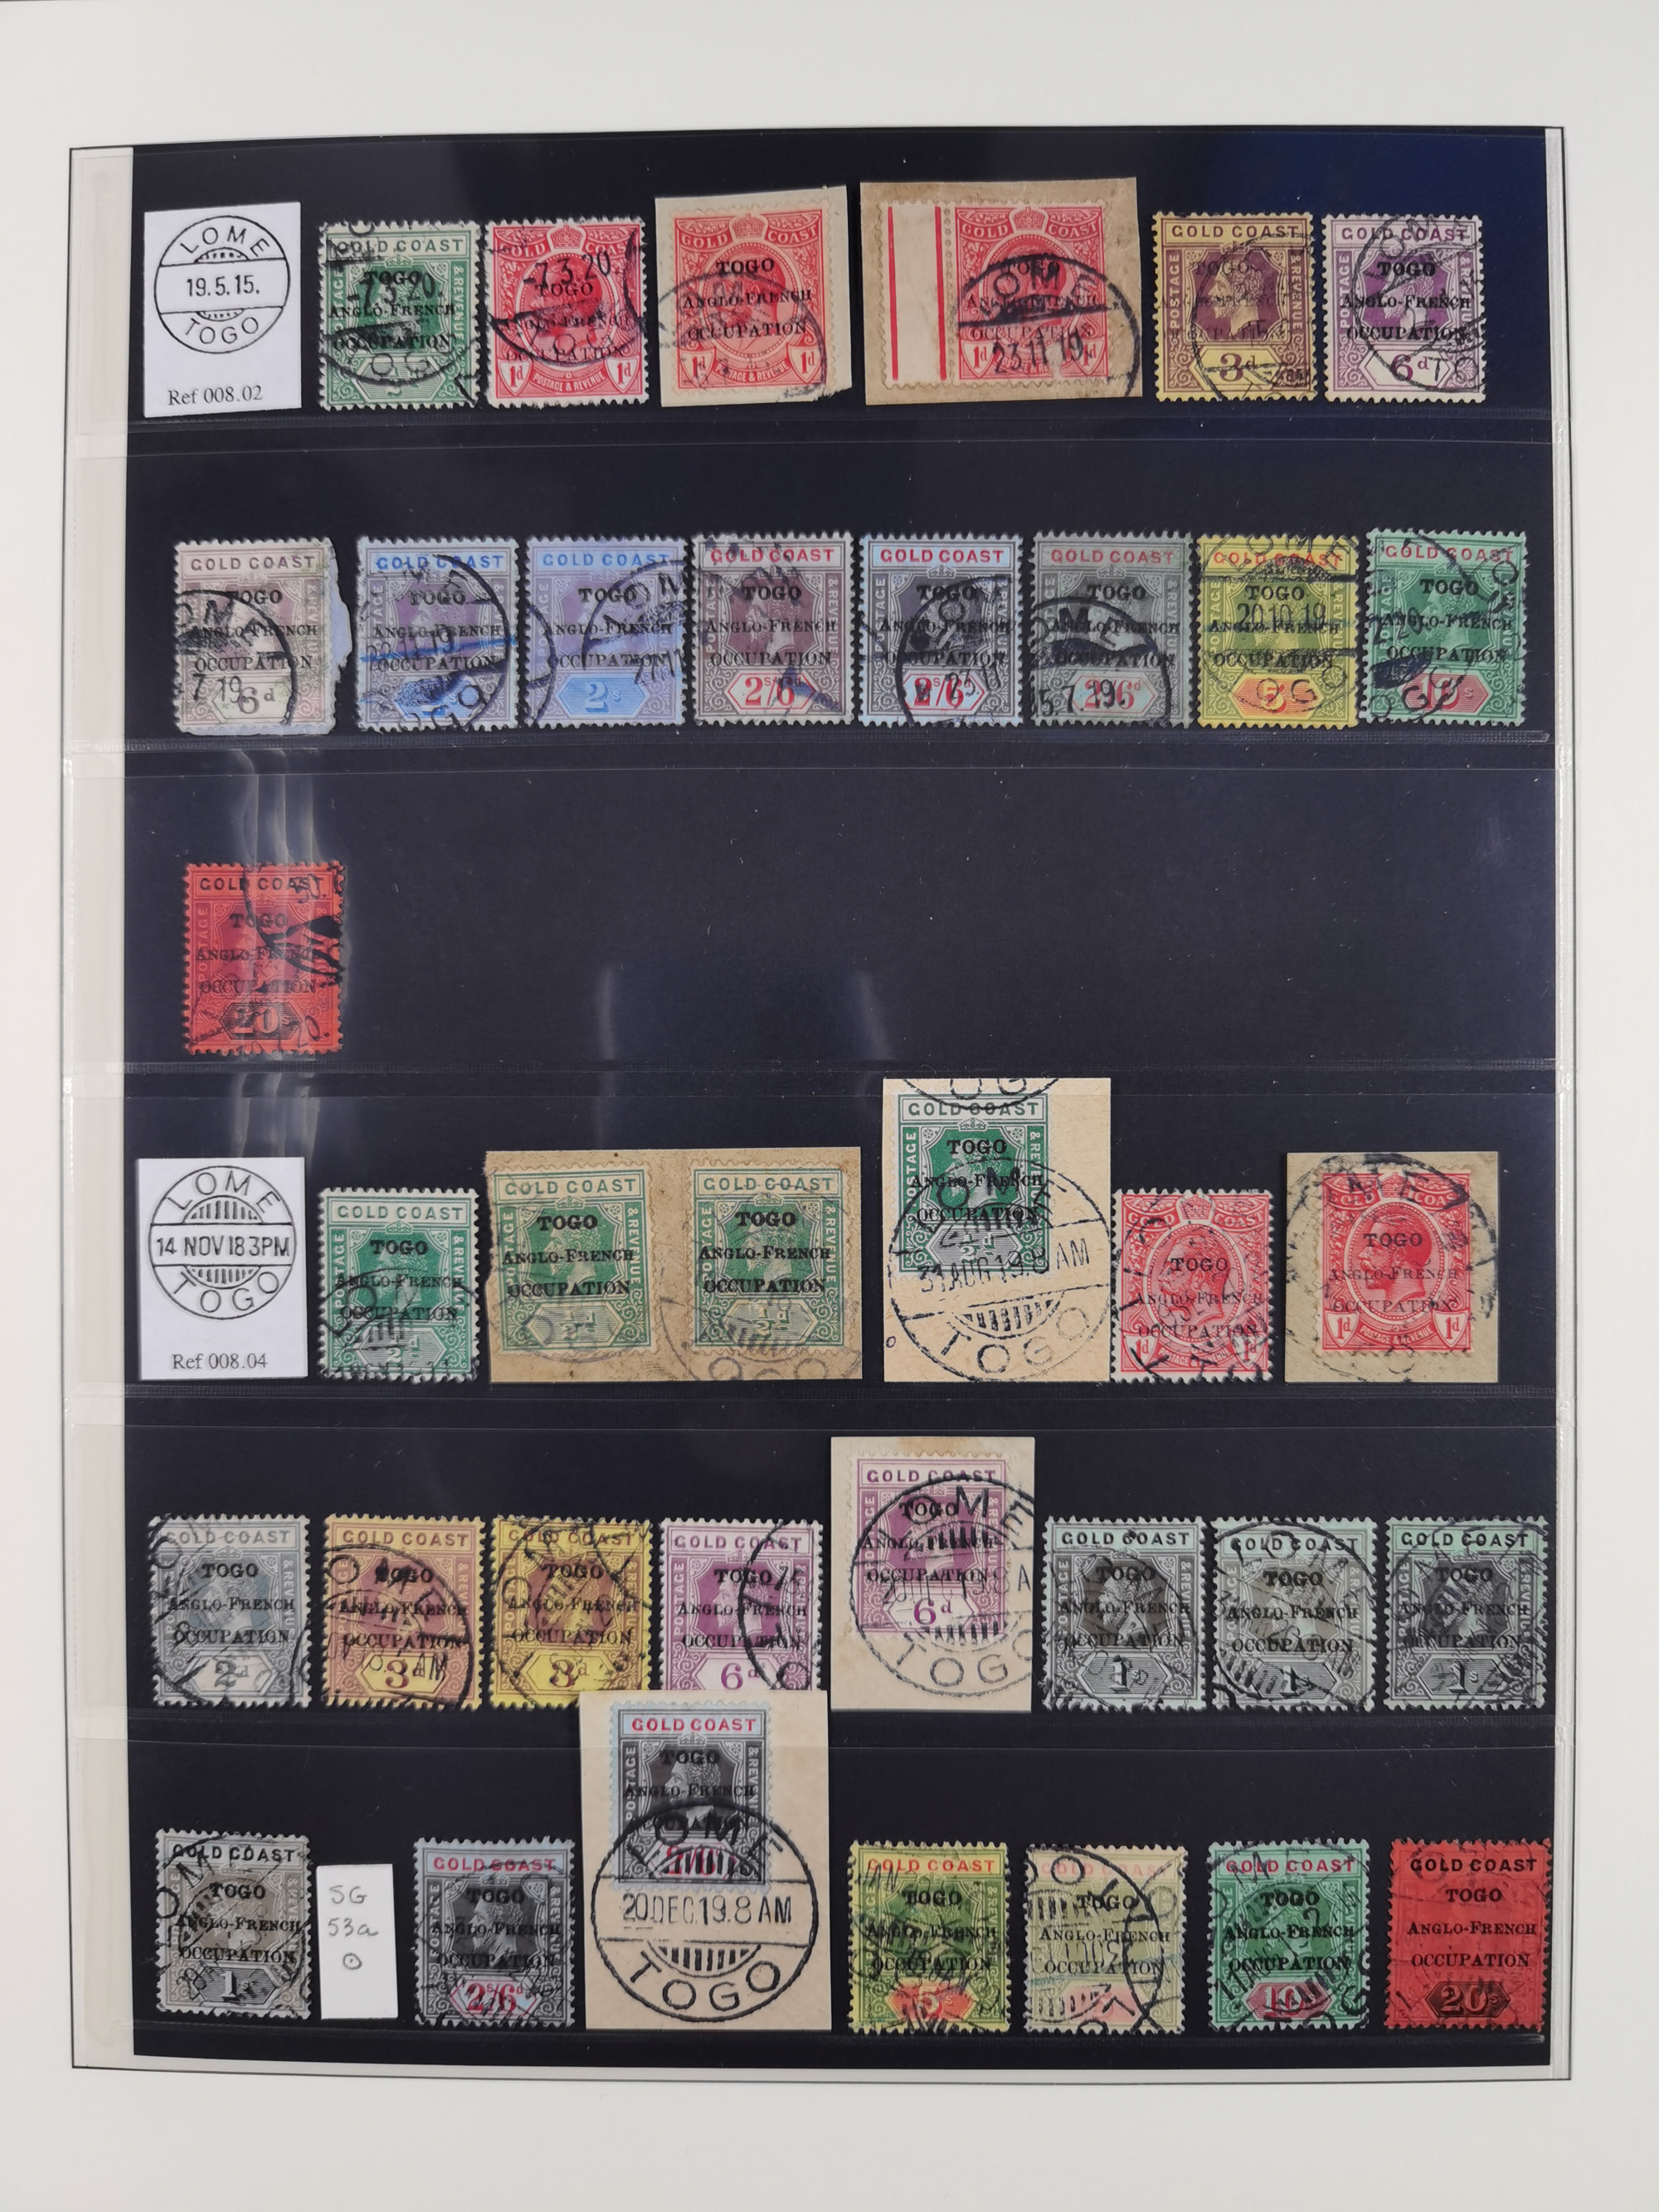 LOME
19.5.15.
TOGO
Ref 008.02
GOLD COAST
-7.3.20.
TOGO
ANGLO-FRENCH
OCCUPATION
GOLD COAST
-7.3.20.
TOGO
ANGLO-FRENCH
OCCUPATION
1d POSTAGE & REVENUE 1d
GOLD COAST
TOGO
ANGLO-FRENCH
OCCUPATION
1d POSTAGE & REVENUE 1d
GOLD COAST
TOGO
LOME
ANGLO-FRENCH
OCCUPATION
1d 23.11.19. 1d
GOLD COAST
TOGO
OCCUPATION
3d
GOLD COAST
TOGO
ANGLO-FRENCH
OCCUPATION
6d
GOLD COAST
TOGO
ANGLO-FRENCH
OCCUPATION
7.19.
6d
GOLD COAST
TOGO
ANGLO-FRENCH
OCCUPATION
GOLD COAST
TOGO
ANGLO-FRENCH
OCCUPATION
2s
GOLD COAST
TOGO
ANGLO-FRENCH
OCCUPATION
2s/6d
GOLD COAST
TOGO
ANGLO-FRENCH
OCCUPATION
2s/6d
GOLD COAST
TOGO
ANGLO-FRENCH
OCCUPATION
5.7.19.
GOLD COAST
TOGO
20.10.19
ANGLO-FRENCH
OCCUPATION
5s
GOLD COAST
TOGO
ANGLO-FRENCH
OCCUPATION
10s
GOLD COAST
TOGO
ANGLO-FRENCH
OCCUPATION
20s
LOME
14 NOV 18 3PM
TOGO
Ref 008.04
GOLD COAST
TOGO
ANGLO-FRENCH
OCCUPATION
½d
GOLD COAST
TOGO
ANGLO-FRENCH
OCCUPATION
½d
GOLD COAST
TOGO
ANGLO-FRENCH
OCCUPATION
½d
GOLD COAST
TOGO
ANGLO-FRENCH
OCCUPATION
½d
31 AUG 19.8 AM
TOGO
GOLD COAST
TOGO
ANGLO-FRENCH
OCCUPATION
1d POSTAGE & REVENUE 1d
GOLD COAST
TOGO
ANGLO-FRENCH
OCCUPATION
1d POSTAGE & REVENUE 1d
GOLD COAST
TOGO
ANGLO-FRENCH
OCCUPATION
2d
GOLD COAST
TOGO
ANGLO-FRENCH
OCCUPATION
3d
GOLD COAST
TOGO
ANGLO-FRENCH
OCCUPATION
3d
GOLD COAST
TOGO
ANGLO-FRENCH
OCCUPATION
6d
GOLD COAST
TOGO
ANGLO-FRENCH
OCCUPATION
6d
TOGO
GOLD COAST
TOGO
ANGLO-FRENCH
OCCUPATION
1s
GOLD COAST
TOGO
ANGLO-FRENCH
OCCUPATION
1s
GOLD COAST
TOGO
ANGLO-FRENCH
OCCUPATION
1s
GOLD COAST
TOGO
ANGLO-FRENCH
OCCUPATION
1s
SG
53a
GOLD COAST
TOGO
ANGLO-FRENCH
OCCUPATION
2s/6d
GOLD COAST
TOGO
ANGLO-FRENCH
LOME
20.DEC.19.8 AM
TOGO
GOLD COAST
TOGO
ANGLO-FRENCH
OCCUPATION
5s
GOLD COAST
TOGO
ANGLO-FRENCH
OCCUPATION
GOLD COAST
TOGO
ANGLO-FRENCH
OCCUPATION
10s
GOLD COAST
TOGO
ANGLO-FRENCH
OCCUPATION
20s